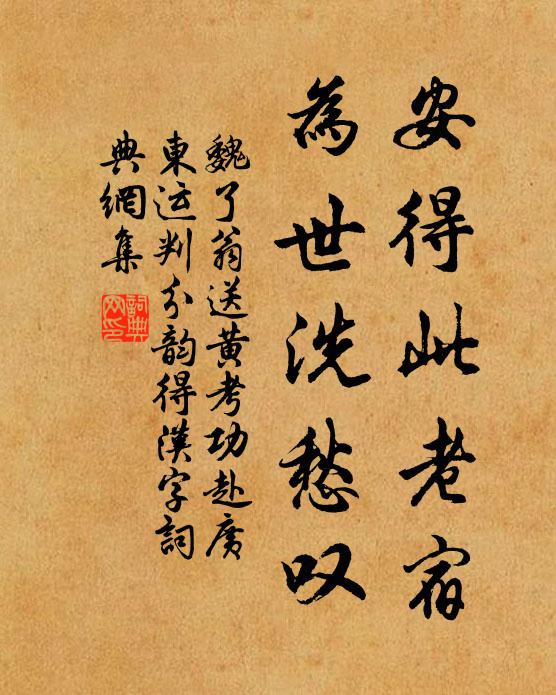 安得此老宿
為世洗愁叹
魏了翁送黄考功赴廣
東运判分韵得漢字詞
典網集
詞典
网印